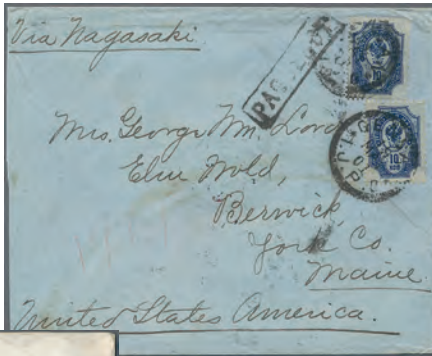 Via Nagasaki.
PAQUEBOT
10
10
Mrs. George Wm. Lord
Elm Wold,
Berwick,
York Co.
Maine
United States America.